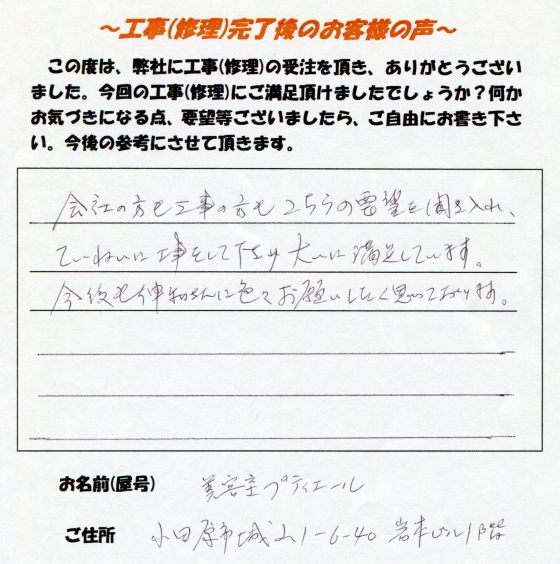 ～工事(修理)完了後のお客様の声～
この度は、弊社に工事(修理)の受注を頂き、ありがとうござい
ました。今回の工事(修理)にご満足頂けましたでしょうか？何か
お気づきになる点、要望等ございましたら、ご自由にお書き下さ
い。今後の参考にさせて頂きます。
会社の方も工事の方もこちらの要望を聞き入れ、
ていねいに工事をして下さり大いに満足しています。
今後も伸和さんに色々お願いしたく思っております。
お名前(屋号) 美容室プティエール
ご住所 小田原市城山1-6-40 岩本ビル1階